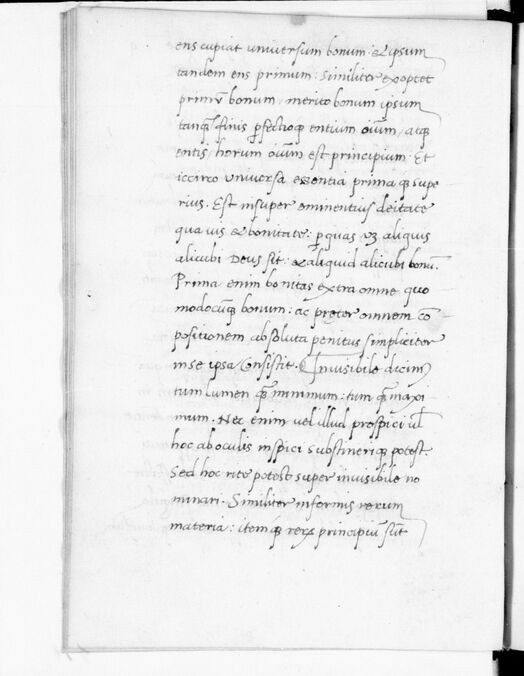 ens cupiat universum bonum. & ipsum
tandem ens primum: Similiter exoptet
primũ bonum, merito bonum ipsum
tanq̃ finis p̱fectioq̨ entium oĩum, atq̨
entis horum oĩum est principium. Et
iccirco universa essentia prima q̨ supe
rius. Est insuper eminentius deitate
qua vis & bonitate: p̱ quas uʒ aliquis
alicubi Deus sit: & aliquid alicubi bonũ.
Prima enim bonitas extra omne quo
modocunq̨ bonum: ac pręter omnem cõ
positionem absoluta penitus simpliciter
in se ipsa consistit. Invisibile dicim᷒
tum lumen q̃ minimum: tum q̃ maxi
mum. Nec enim vel illud prospici ul̃
hoc ab oculis inspici substineriq̨ potest.
Sed hoc rite potest super invisibile no
minari. Similiter informis rerum
materia: item q̨ rerꝝ principiũ sũt